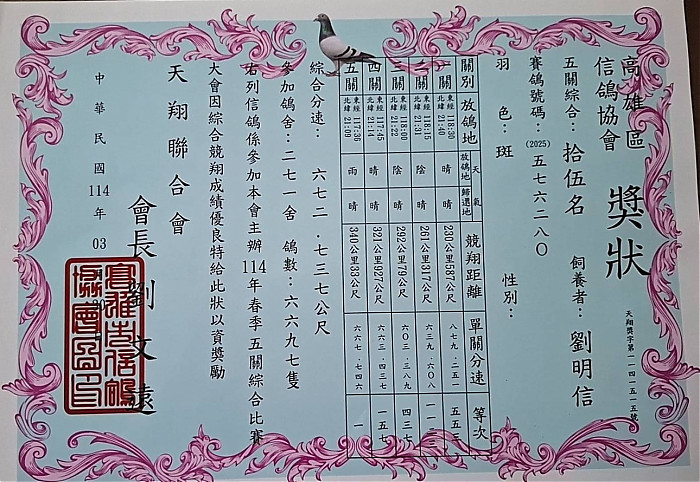 高雄區
信鴿協會
獎狀
天翔獎字第一一四一五一五號
五關綜合：拾伍名 飼養者：劉明信
賽鴿號碼：(2025)五七六二八〇
羽色：斑 性別：
關別 放鴿地 天氣 放鴿地 歸返地 競翔距離 單關分速 等次
一關 東經 118:30 北緯 21:40 晴 晴 230公里587公尺 八七九．二五一 五五三
二關 東經 118:15 北緯 21:31 陰 晴 261公里317公尺 六三九．六〇八 一一二
三關 東經 118:00 北緯 21:22 陰 晴 292公里79公尺 六〇三．三八九 四三七
四關 東經 117:45 北緯 21:14 晴 晴 321公里927公尺 六六三．四三七 一五七
五關 東經 117:36 北緯 21:05 雨 晴 340公里33公尺 六六七．七四六 一
綜合分速：六七二．七三七公尺
參加鴿舍：二七一舍 鴿數：六六九七隻
右列信鴿係參加本會主辦114年春季五關綜合比賽
大會因綜合競翔成績優良特給此狀以資獎勵
天翔聯合會
會長劉文遠
高雄市信鴿
協會圖印
中華民國114年03